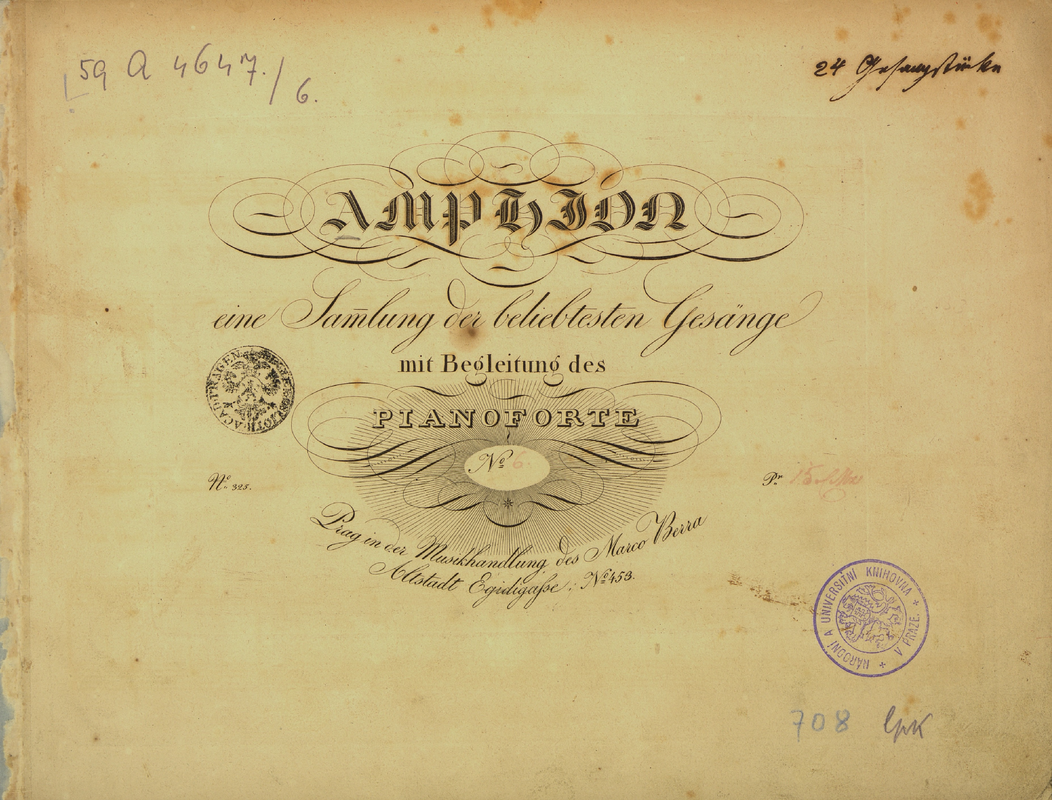 59 A 4647./6.
24 Gesangstücke
AMPHION
eine Sam̅lung der beliebtesten Gesänge
mit Begleitung des
PIANOFORTE
No 6.
No 325.
Pr.
Prag in der Musikhandlung des Marco Berra
Altstadt Egidigaſse: No 453.
NÁRODNÍ A UNIVERSITNÍ KNIHOVNA + V PRAZE. +
708